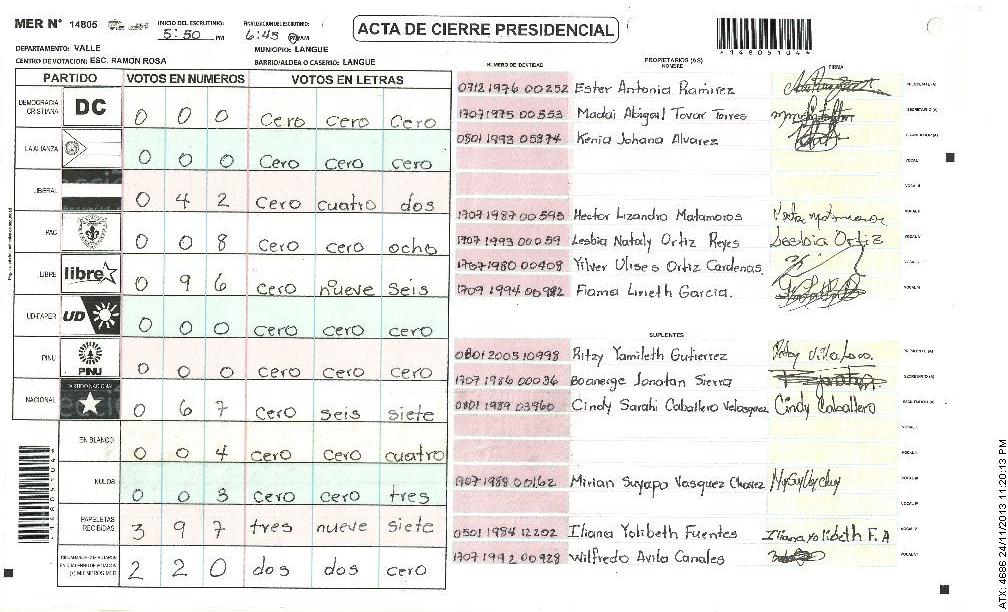 MER N° 14805
INICIO DEL ESCRUTINIO: 5:50 PM
FINALIZACION DEL ESCRUTINIO: 6:45 PM
ACTA DE CIERRE PRESIDENCIAL
14805104
DEPARTAMENTO: VALLE
MUNICIPIO: LANGUE
CENTRO DE VOTACION: ESC. RAMON ROSA
BARRIO/ALDEA O CASERIO: LANGUE
PARTIDO VOTOS EN NUMEROS VOTOS EN LETRAS
DEMOCRACIA CRISTIANA DC 0 0 0 Cero cero Cero
LA ALIANZA 0 0 0 Cero cero cero
LIBERAL 0 4 2 Cero cuatro dos
PAC 0 0 8 Cero cero ocho
LIBRE libre 0 9 6 Cero nueve seis
UD-FAPER UD 0 0 0 cero cero cero
PINU PINU 0 0 0 cero cero cero
NACIONAL PARTIDO NACIONAL 0 6 7 cero seis siete
EN BLANCO 0 0 4 cero cero cuatro
NULOS 0 0 3 cero cero tres
PAPELETAS RECIBIDAS 3 9 7 tres nueve siete
2 2 0 dos dos cero
PROPIETARIOS (AS)
NUMERO DE IDENTIDAD NOMBRE FIRMA
0712 1976 00252 Ester Antonia Ramirez
1707 1975 00553 Madai Abigail Tovar Torres
0801 1993 05874 Kenia Johana Alvarez
1707 1987 00595 Hector Lizandro Matamoros
1707 1993 00059 Lesbia Nataly Ortiz Reyes Lesbia Ortiz
1707 1980 00408 Yilver Ulises Ortiz Cardenas.
1709 1994 00982 Fiama Lineth Garcia.
SUPLENTES
0801 2005 10998 Ritzy Yamileth Gutierrez
1707 1986 00036 Boanerge Jonatan Sierra
0801 1989 03960 Cindy Sarahi Caballero Velasquez Cindy Caballero
1707 1988 00162 Mirian Suyapa Vasquez Chavez
0501 1984 12202 Iliana Yolibeth Fuentes Iliana Yolibeth F. A
1707 1992 00928 Wilfredo Avila Canales
ATX: 4686 24/11/2013 11:20:13 PM